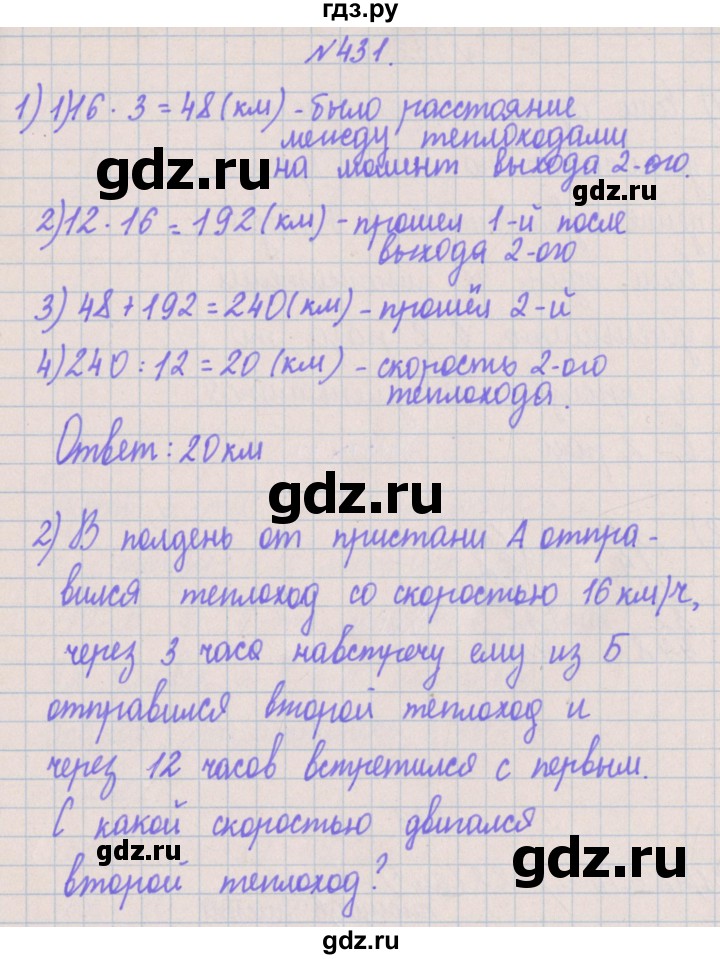 гдз.ру
№431.
1) 1)16 · 3 = 48 (км) - было расстояние
между теплоходами
на момент выхода 2-ого.
gdz.ru
gdz.ru
2) 12 · 16 = 192 (км) - прошел 1-й после
выхода 2-ого
3) 48 + 192 = 240 (км) - прошёл 2-й
4) 240 : 12 = 20 (км) - скорость 2-ого
теплохода.
Ответ: 20 км
gdz.ru
2) В полдень от пристани А отпра-
вился теплоход со скоростью 16 км/ч,
через 3 часа навстречу ему из Б
отправился второй теплоход и
через 12 часов встретился с первым.
С какой скоростью двигался
gdz.ru
gdz.ru
второй теплоход?
gdz.ru